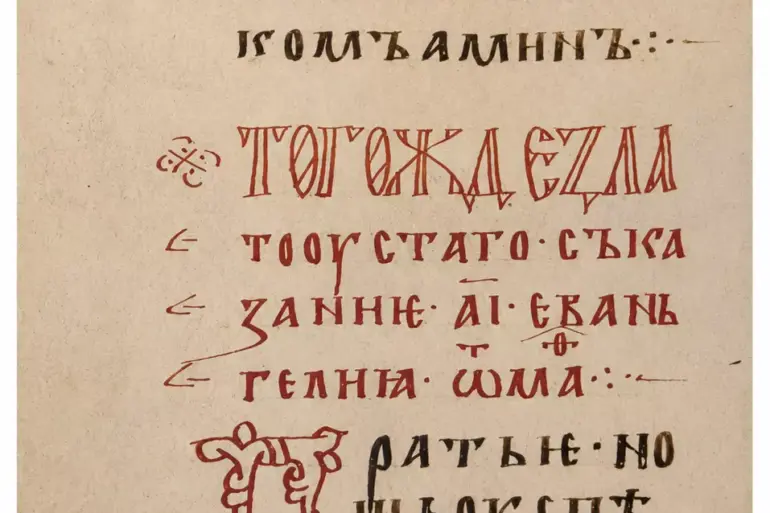 комъаминъ·:·
ТОГОЖДЕꙀЛА
тооустаго·съка
заниѥ·а҃і·євань
гелиꙗ·ѿмⷴа·:·
ратьѥ·но